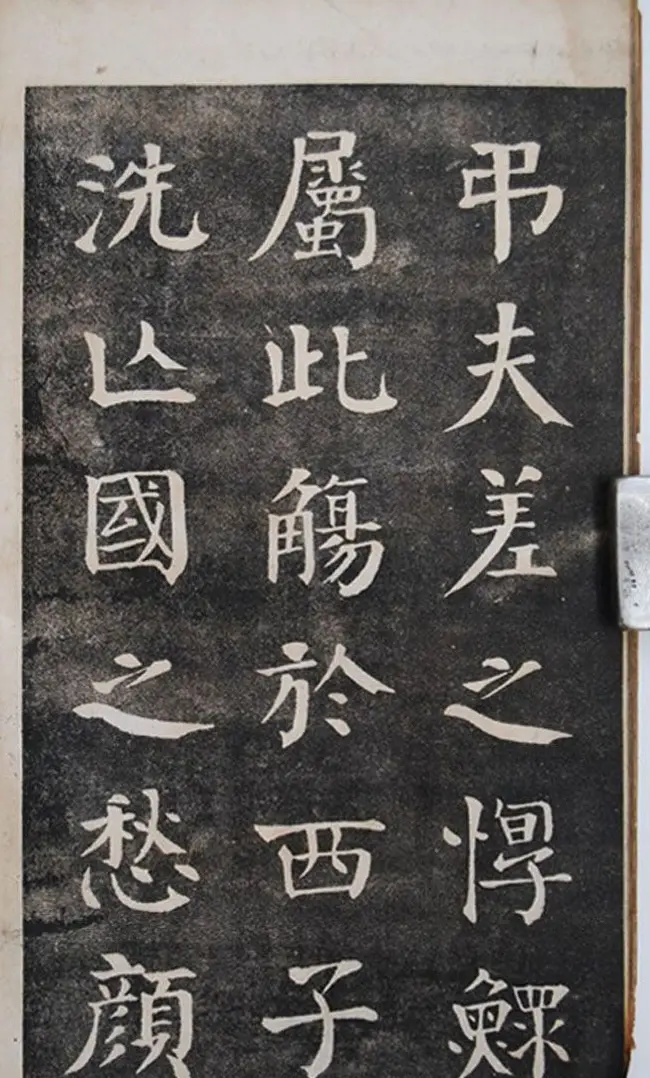 弔夫差之惸鰥
屬此觴於西子
洗亾國之愁顔